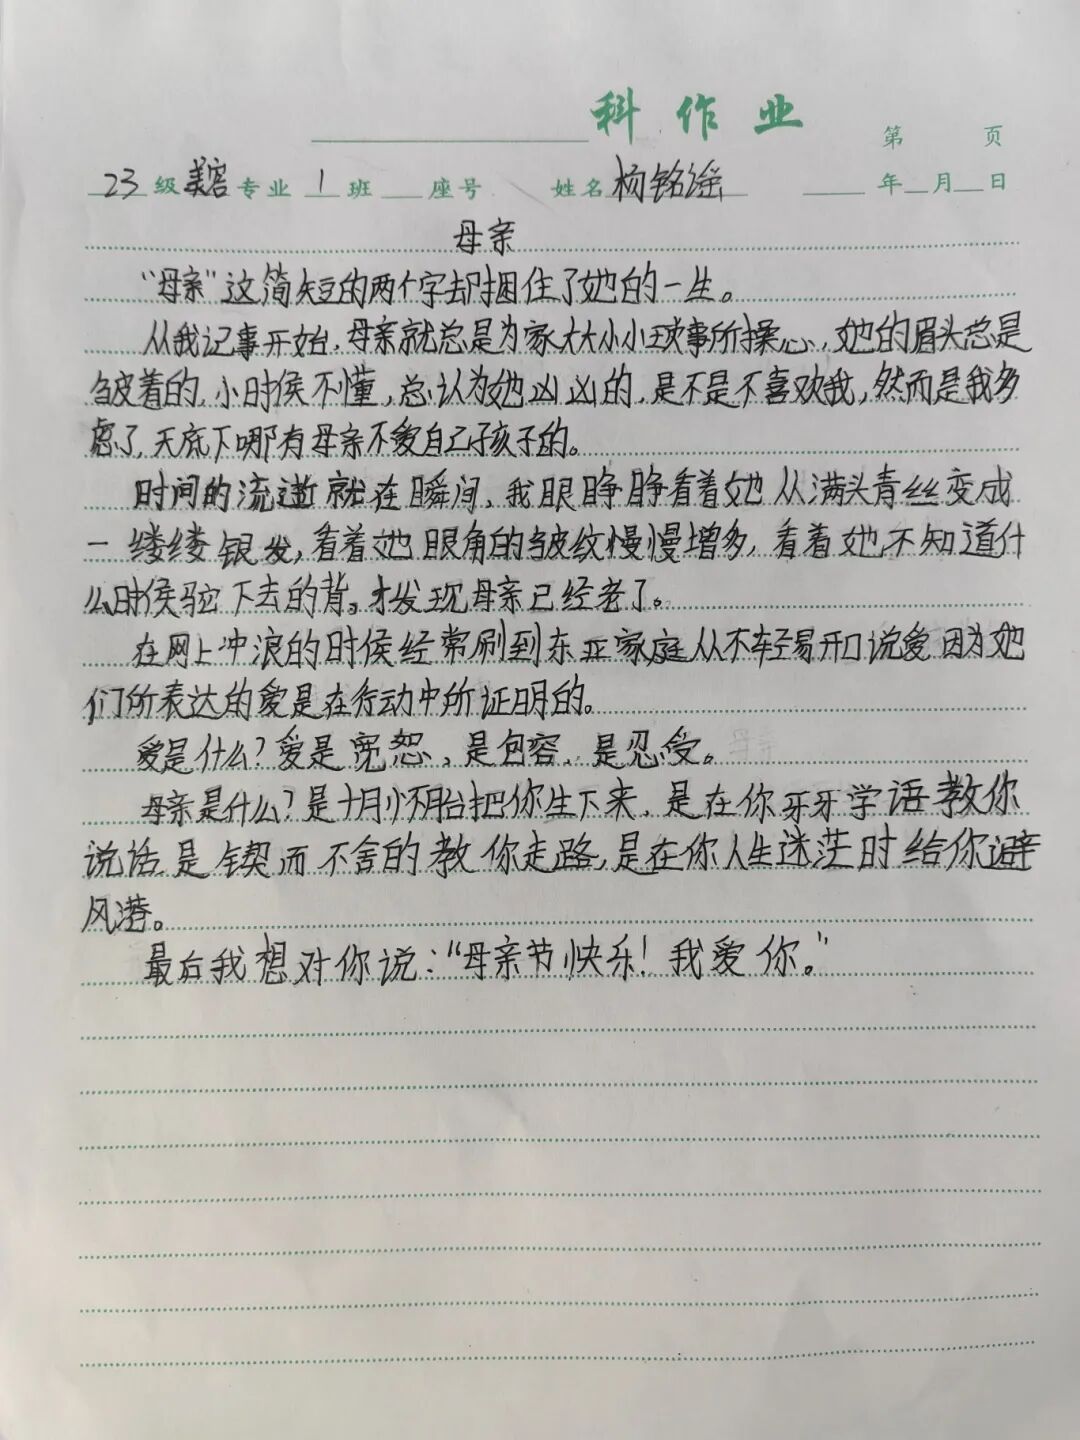 科作业
第 页
23级美容专业1班 座号 姓名杨铭 年 月 日
母亲
“母亲”这简短的两个字却捆住了她的一生。
从我记事开始,母亲就总是为家大大小小琐事所操心,她的眉头总是
皱着的,小时侯不懂,总认为她凶凶的,是不是不喜欢我,然而是我多
虑了,天底下哪有母亲不爱自己孩子的。
时间的流逝就在瞬间,我眼睁睁看着她从满头青丝变成
一缕缕银发,看着她眼角的皱纹慢慢增多,看着她不知道什
么时侯驼下去的背。才发现母亲已经老了。
在网上冲浪的时侯经常刷到东亚家庭从不轻易开口说爱因为她
们所表达的爱是在行动中所证明的。
爱是什么?爱是宽恕,是包容,是忍受。
母亲是什么?是十月怀胎把你生下来,是在你牙牙学语教你
说话是锲而不舍的教你走路,是在你人生迷茫时给你避
风港。
最后我想对你说:“母亲节快乐!我爱你。”